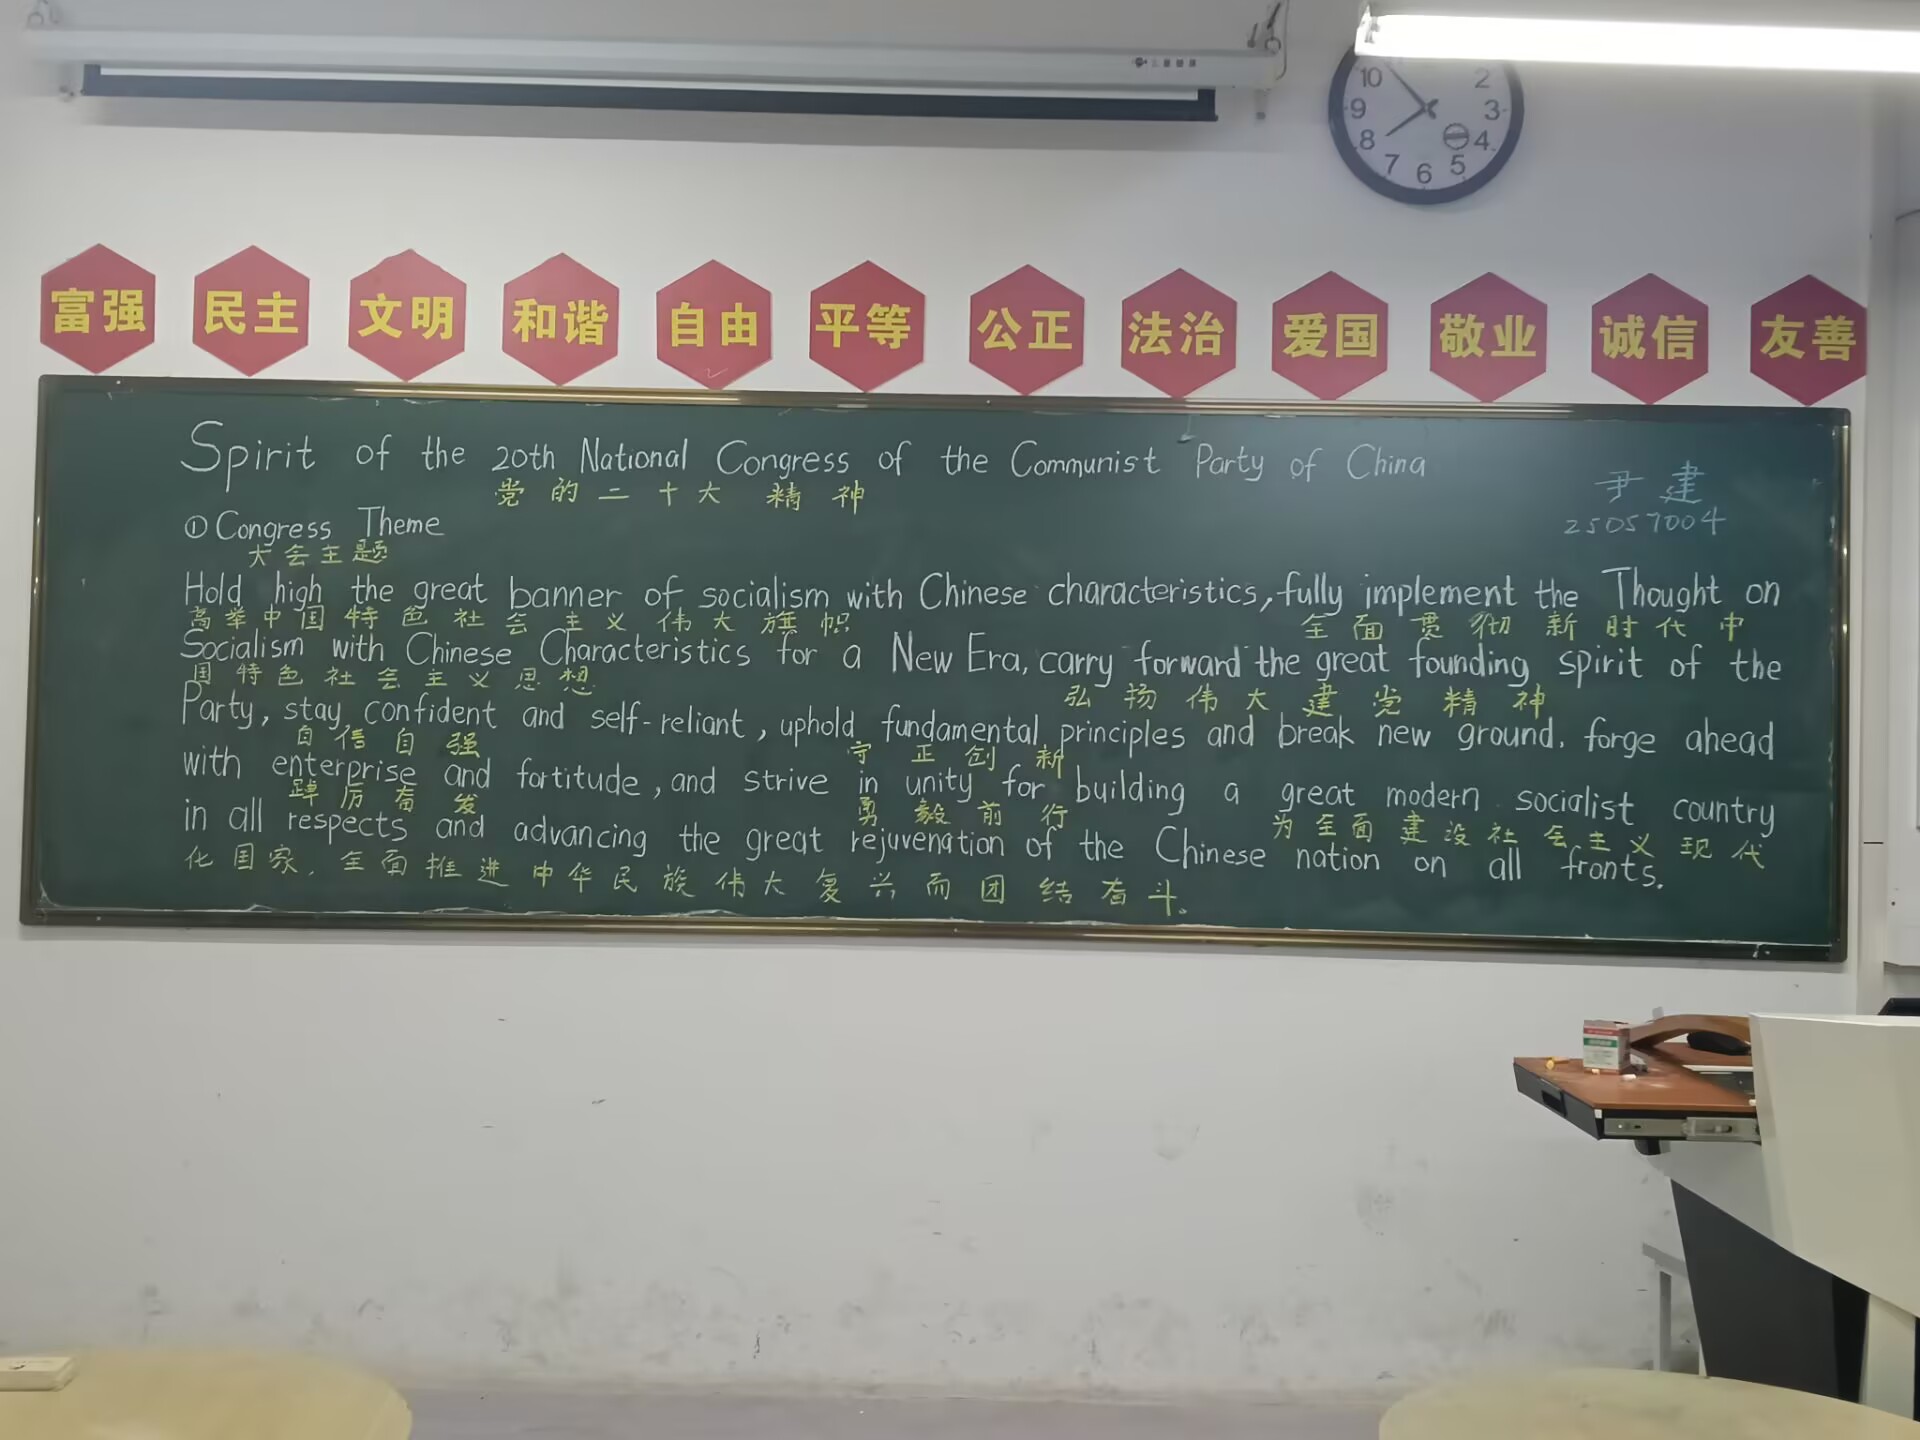 10 2
9 3
8 4
7 6 5
富强 民主 文明 和谐 自由 平等 公正 法治 爱国 敬业 诚信 友善
Spirit of the 20th National Congress of the Communist Party of China
党的二十大 精神
尹建
25057004
① Congress Theme
大会主题
Hold high the great banner of socialism with Chinese characteristics, fully implement the Thought on
高举中国特色社会主义伟大旗帜 全面贯彻新时代中
Socialism with Chinese Characteristics for a New Era, carry forward the great founding spirit of the
国特色社会主义思想 弘扬伟大建党精神
Party, stay confident and self-reliant, uphold fundamental principles and break new ground. forge ahead
自信自强 守正创新
with enterprise and fortitude, and strive in unity for building a great modern socialist country
踔厉奋发 勇毅前行 为全面建设社会主义现代
in all respects and advancing the great rejuvenation of the Chinese nation on all fronts.
化国家. 全面推进中华民族伟大复兴而团结奋斗。